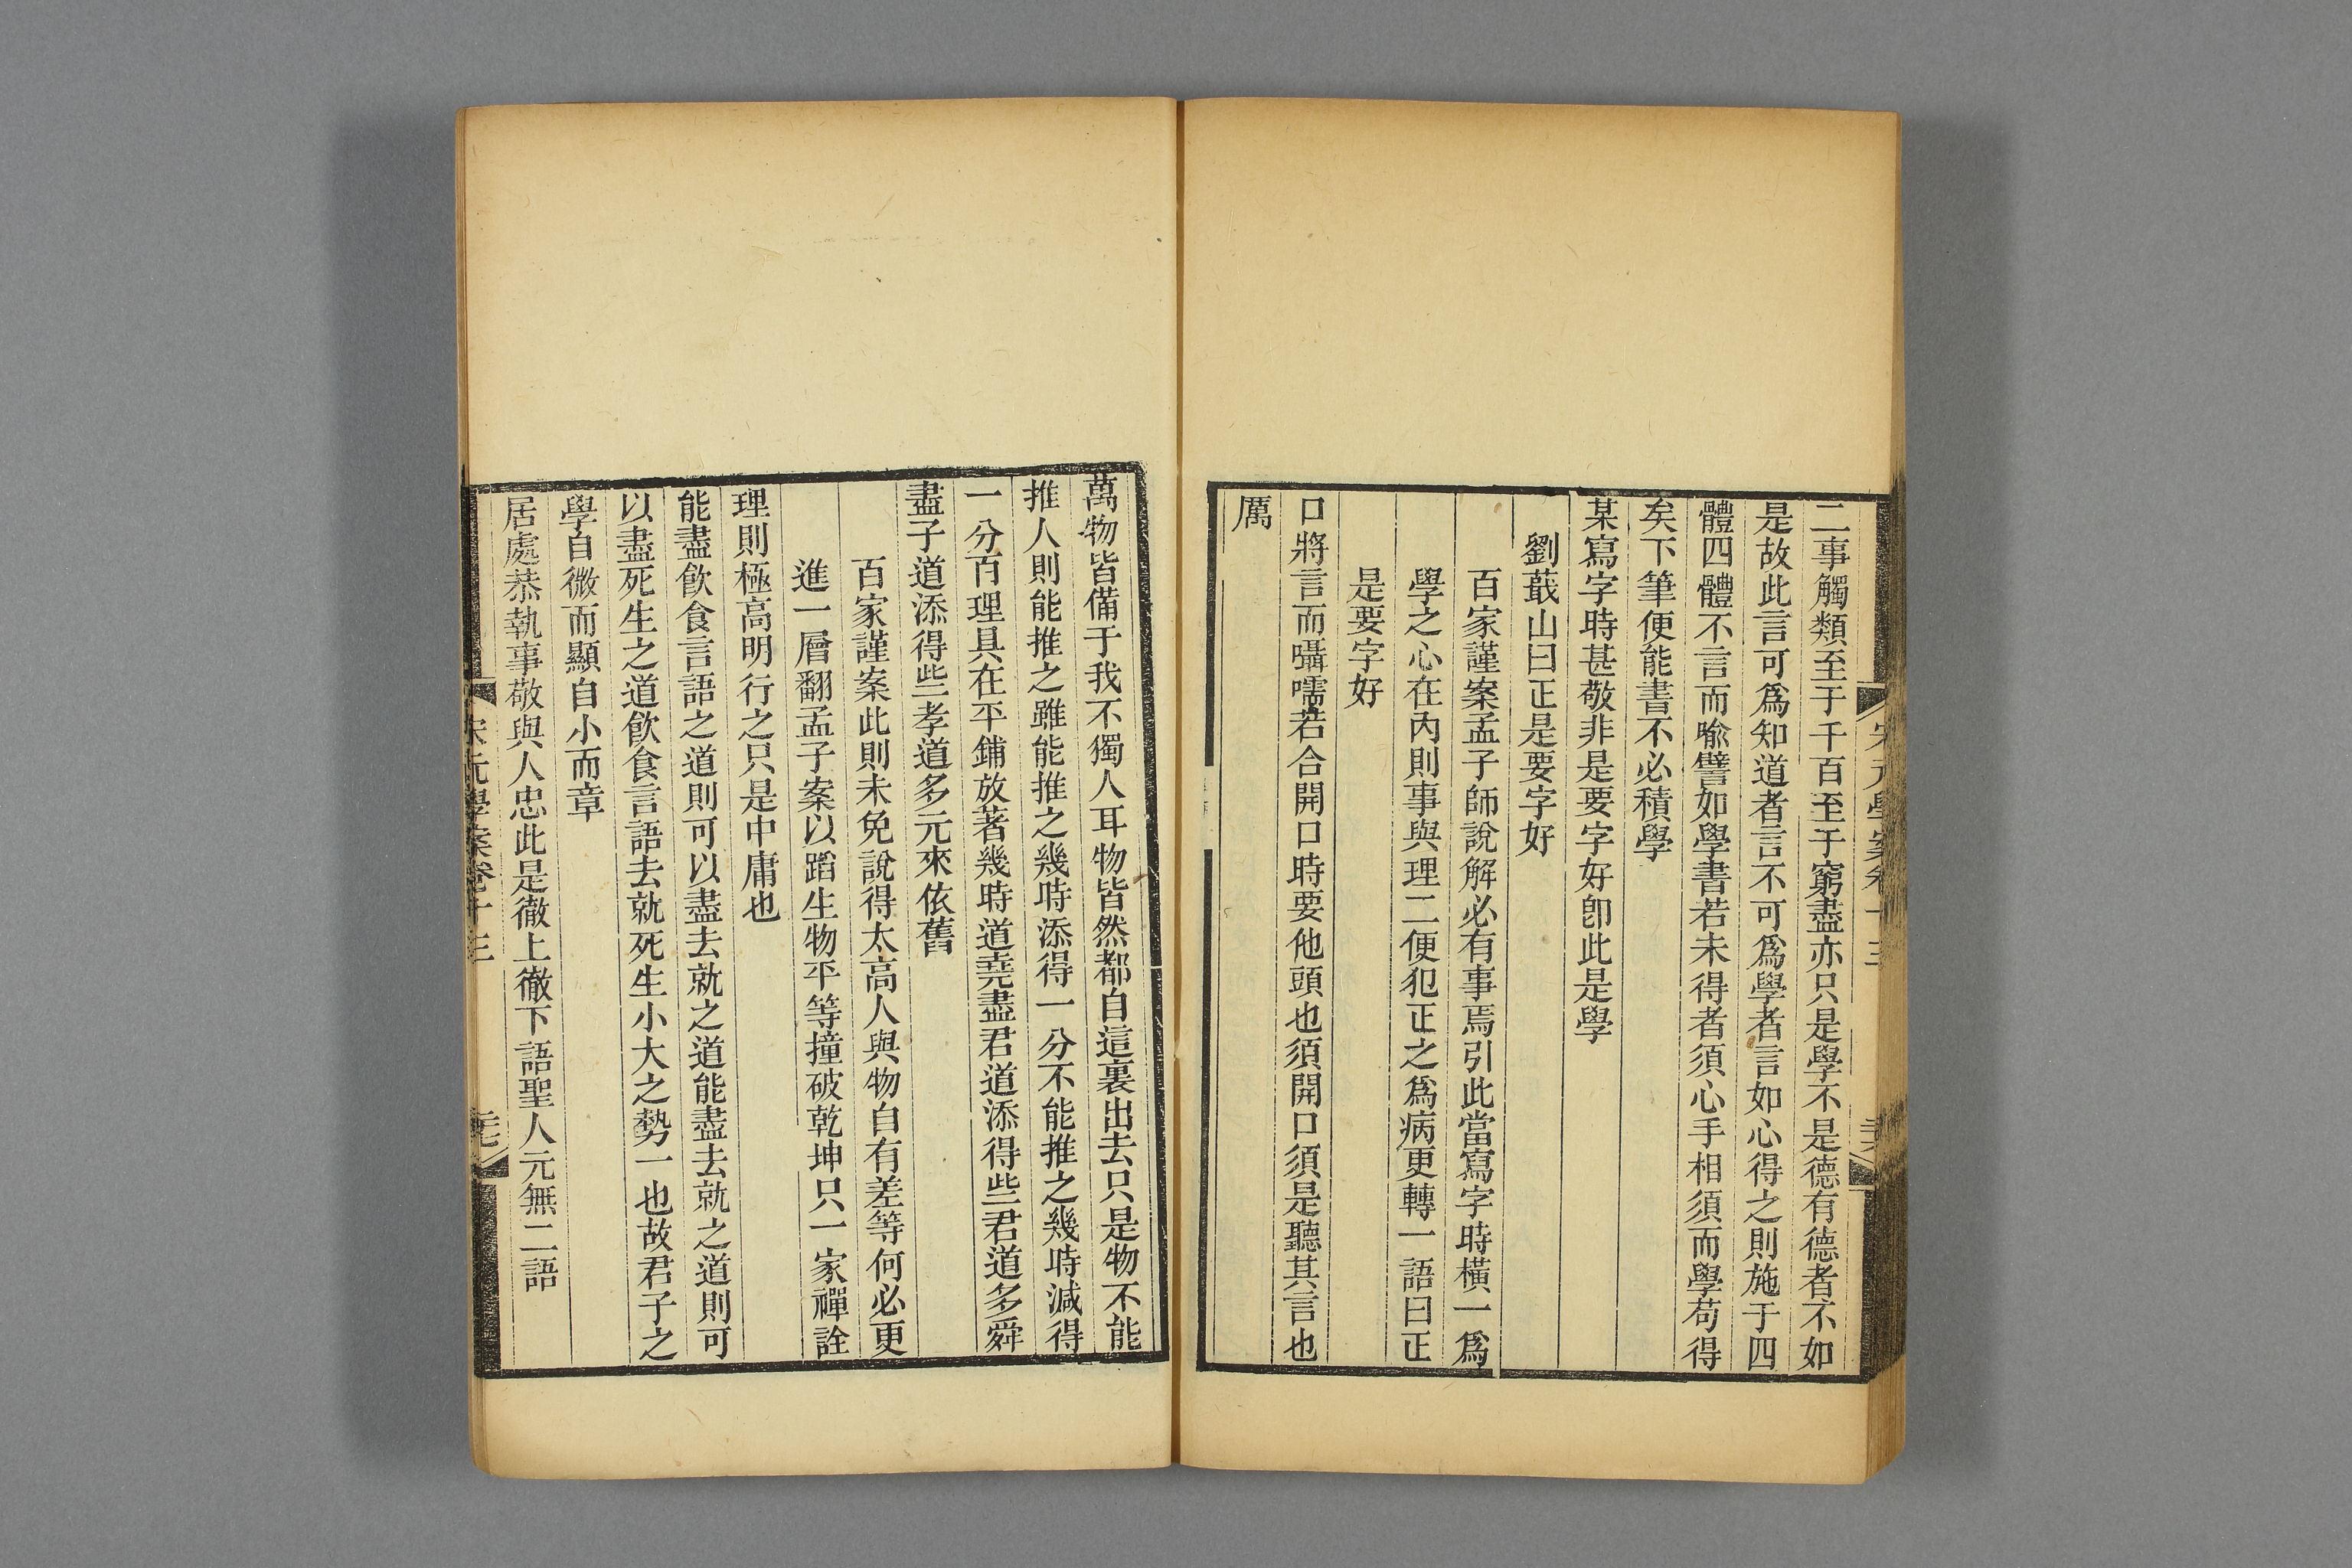 宋元學案卷十三
二事觸類至于千百至于窮盡亦只是學不是德有德者不如
是故此言可爲知道者言不可爲學者言如心得之則施于四
體四體不言而喻譬如學書若未得者須心手相須而學苟得
矣下筆便能書不必積學
某寫字時甚敬非是要字好卽此是學
劉蕺山曰正是要字好
百家謹案孟子師說解必有事焉引此當寫字時橫一爲
學之心在內則事與理二便犯正之爲病更轉一語曰正
是要字好
口將言而囁嚅若合開口時要他頭也須開口須是聽其言也
厲
萬物皆備于我不獨人耳物皆然都自這裏出去只是物不能
推人則能推之雖能推之幾時添得一分不能推之幾時減得
一分百理具在平鋪放著幾時道堯盡君道添得些君道多舜
盡子道添得些孝道多元來依舊
百家謹案此則未免說得太高人與物自有差等何必更
進一層翻孟子案以蹈生物平等撞破乾坤只一家禪詮
理則極高明行之只是中庸也
能盡飮食言語之道則可以盡去就之道能盡去就之道則可
以盡死生之道飮食言語去就死生小大之勢一也故君子之
學自微而顯自小而章
居處恭執事敬與人忠此是徹上徹下語聖人元無二語
宋元學案卷十三